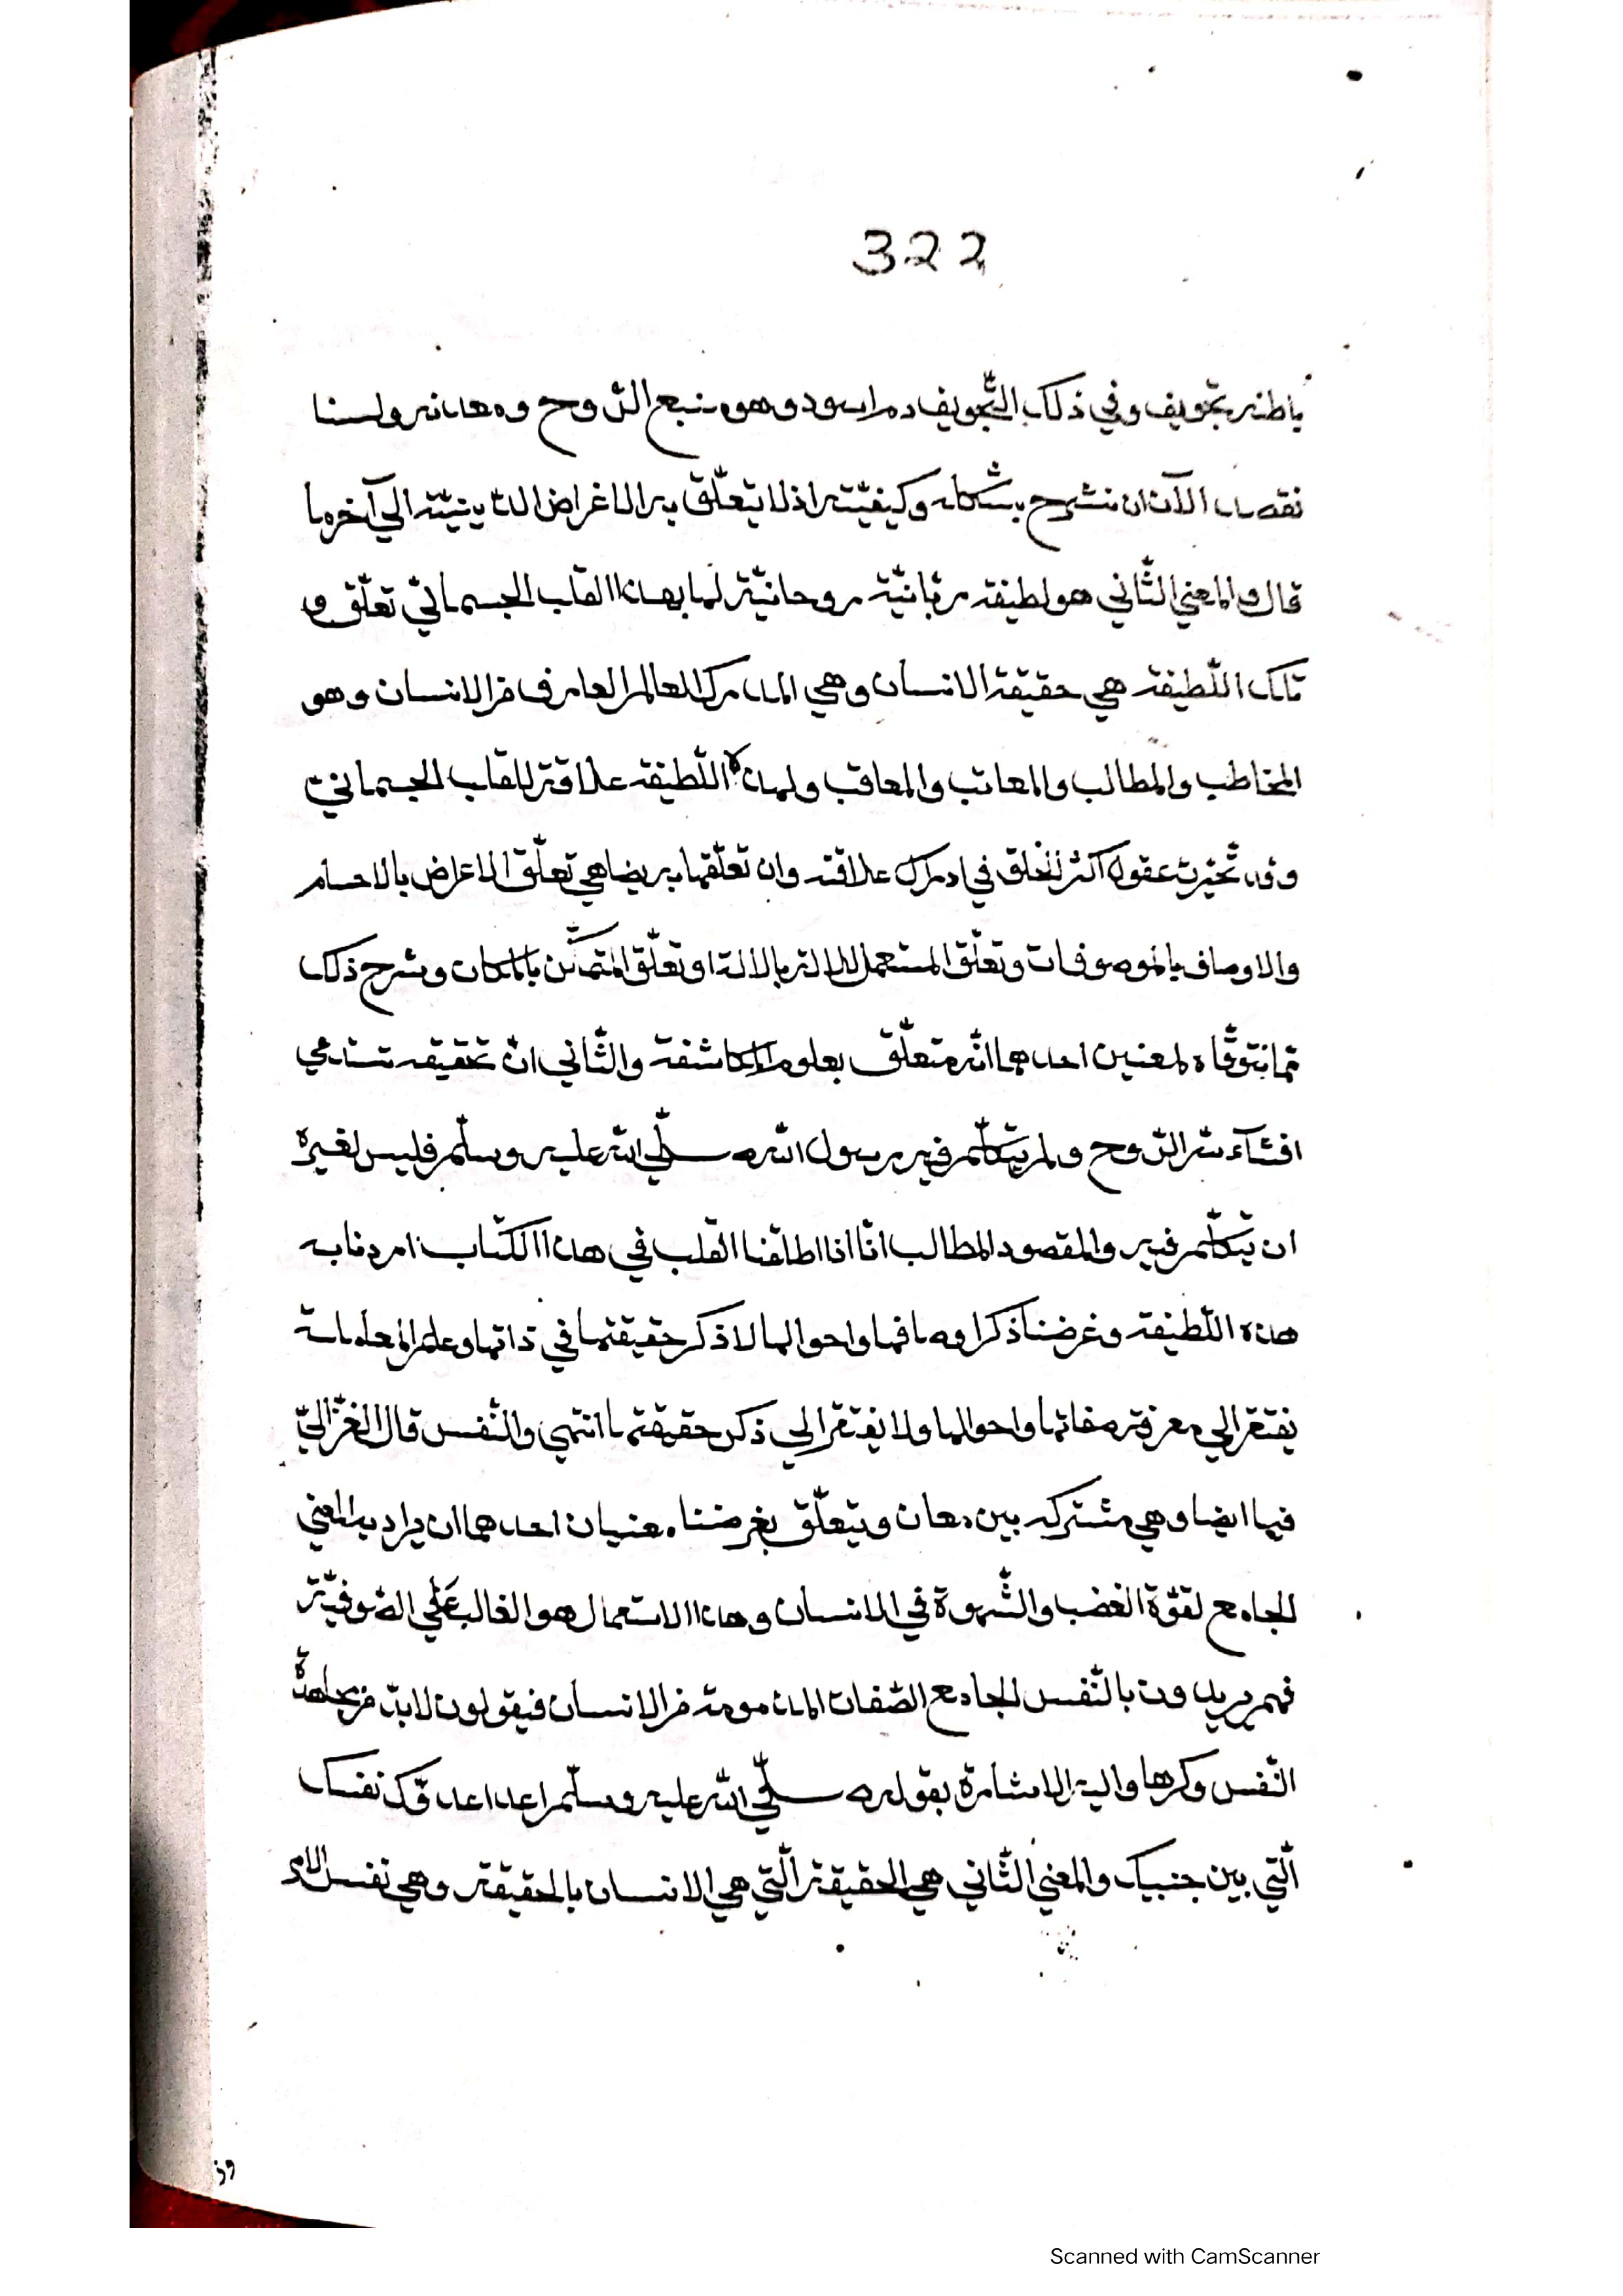 322
باطنه تجويف وفي ذلك التّجويف دم اسود وهو منبع الرّوح ومعدنه ولسنا
نقصد الآن ان نشرح بشكله وكيفيّته اذ لا يتعلّق به الاغراض الدّينيّة الي آخر ما
قال والمعني الثّاني هو لطيفة ربّانيّة روحانيّة لها بهذا القلب الجسمانيّ تعلّق و
تلك اللّطيفة هي حقيقة الانسان وهي المدرك العالم العارف من الانسان وهو
المخاطب والمطالب والمعاتب والمعاقب ولهذه اللّطيفة علاقة للقلب الجسماني
وقد تحّيرت عقول اكثر الخلق في ادراك علاقته وان تعلّقها به يضاهي تعلّق الاعراض بالاجسام
والاوصاف بالموصوفات وتعلّق المستعمل للالة بالالة او تعلّق المتمكّن بالمكان وشرح ذلك
مما نتوقّاه لمعنين احدهما انّه متعلّق بعلوم المكاشفة والثّاني انّ تحقيقه تستدعي
افشآء سّر الرّوح ولم يتكلّم فيه رسول الله صلّي الله عليه وسلّم فليس لغيره
ان يتكلّم فيه والمقصود المطالب انّا اذا اطلقنا القلب في هذا الكتاب اردنا به
هذه اللّطيفة وغرضنا ذكر اوصافها واحوالها لا ذكر حقيقتها في ذاتها وعلم المعاملة
يفتقر الي معرفة صفاتها واحوالها ولا يفتقر الي ذكر حقيقتها انتهي والنّفس قال الغزّاليّ
فيها ايضا وهي مشتركه بين معان ويتعلّق بغرضنا معنيان احدهما ان يراد به المعني
الجامع لقوّة الغضب والشّهوة في الانسان وهذا الاستعمال هو الغالب عَلَي الصّوفيّة
فهم يريدون بالنّفس الجامع الصّفات المذمومة من الانسان فيقولون لابدّ من مجاهدة
النّفس وكرها واليه الاشارة بقوله صلّي الله عليه وسلّم اعدا عدوّك نفسك
الّتي بين جنبيك والمعني الثّاني هي الحقيقة الّتي هي الانسان بالحقيقة وهي نفس
Scanned with CamScanner